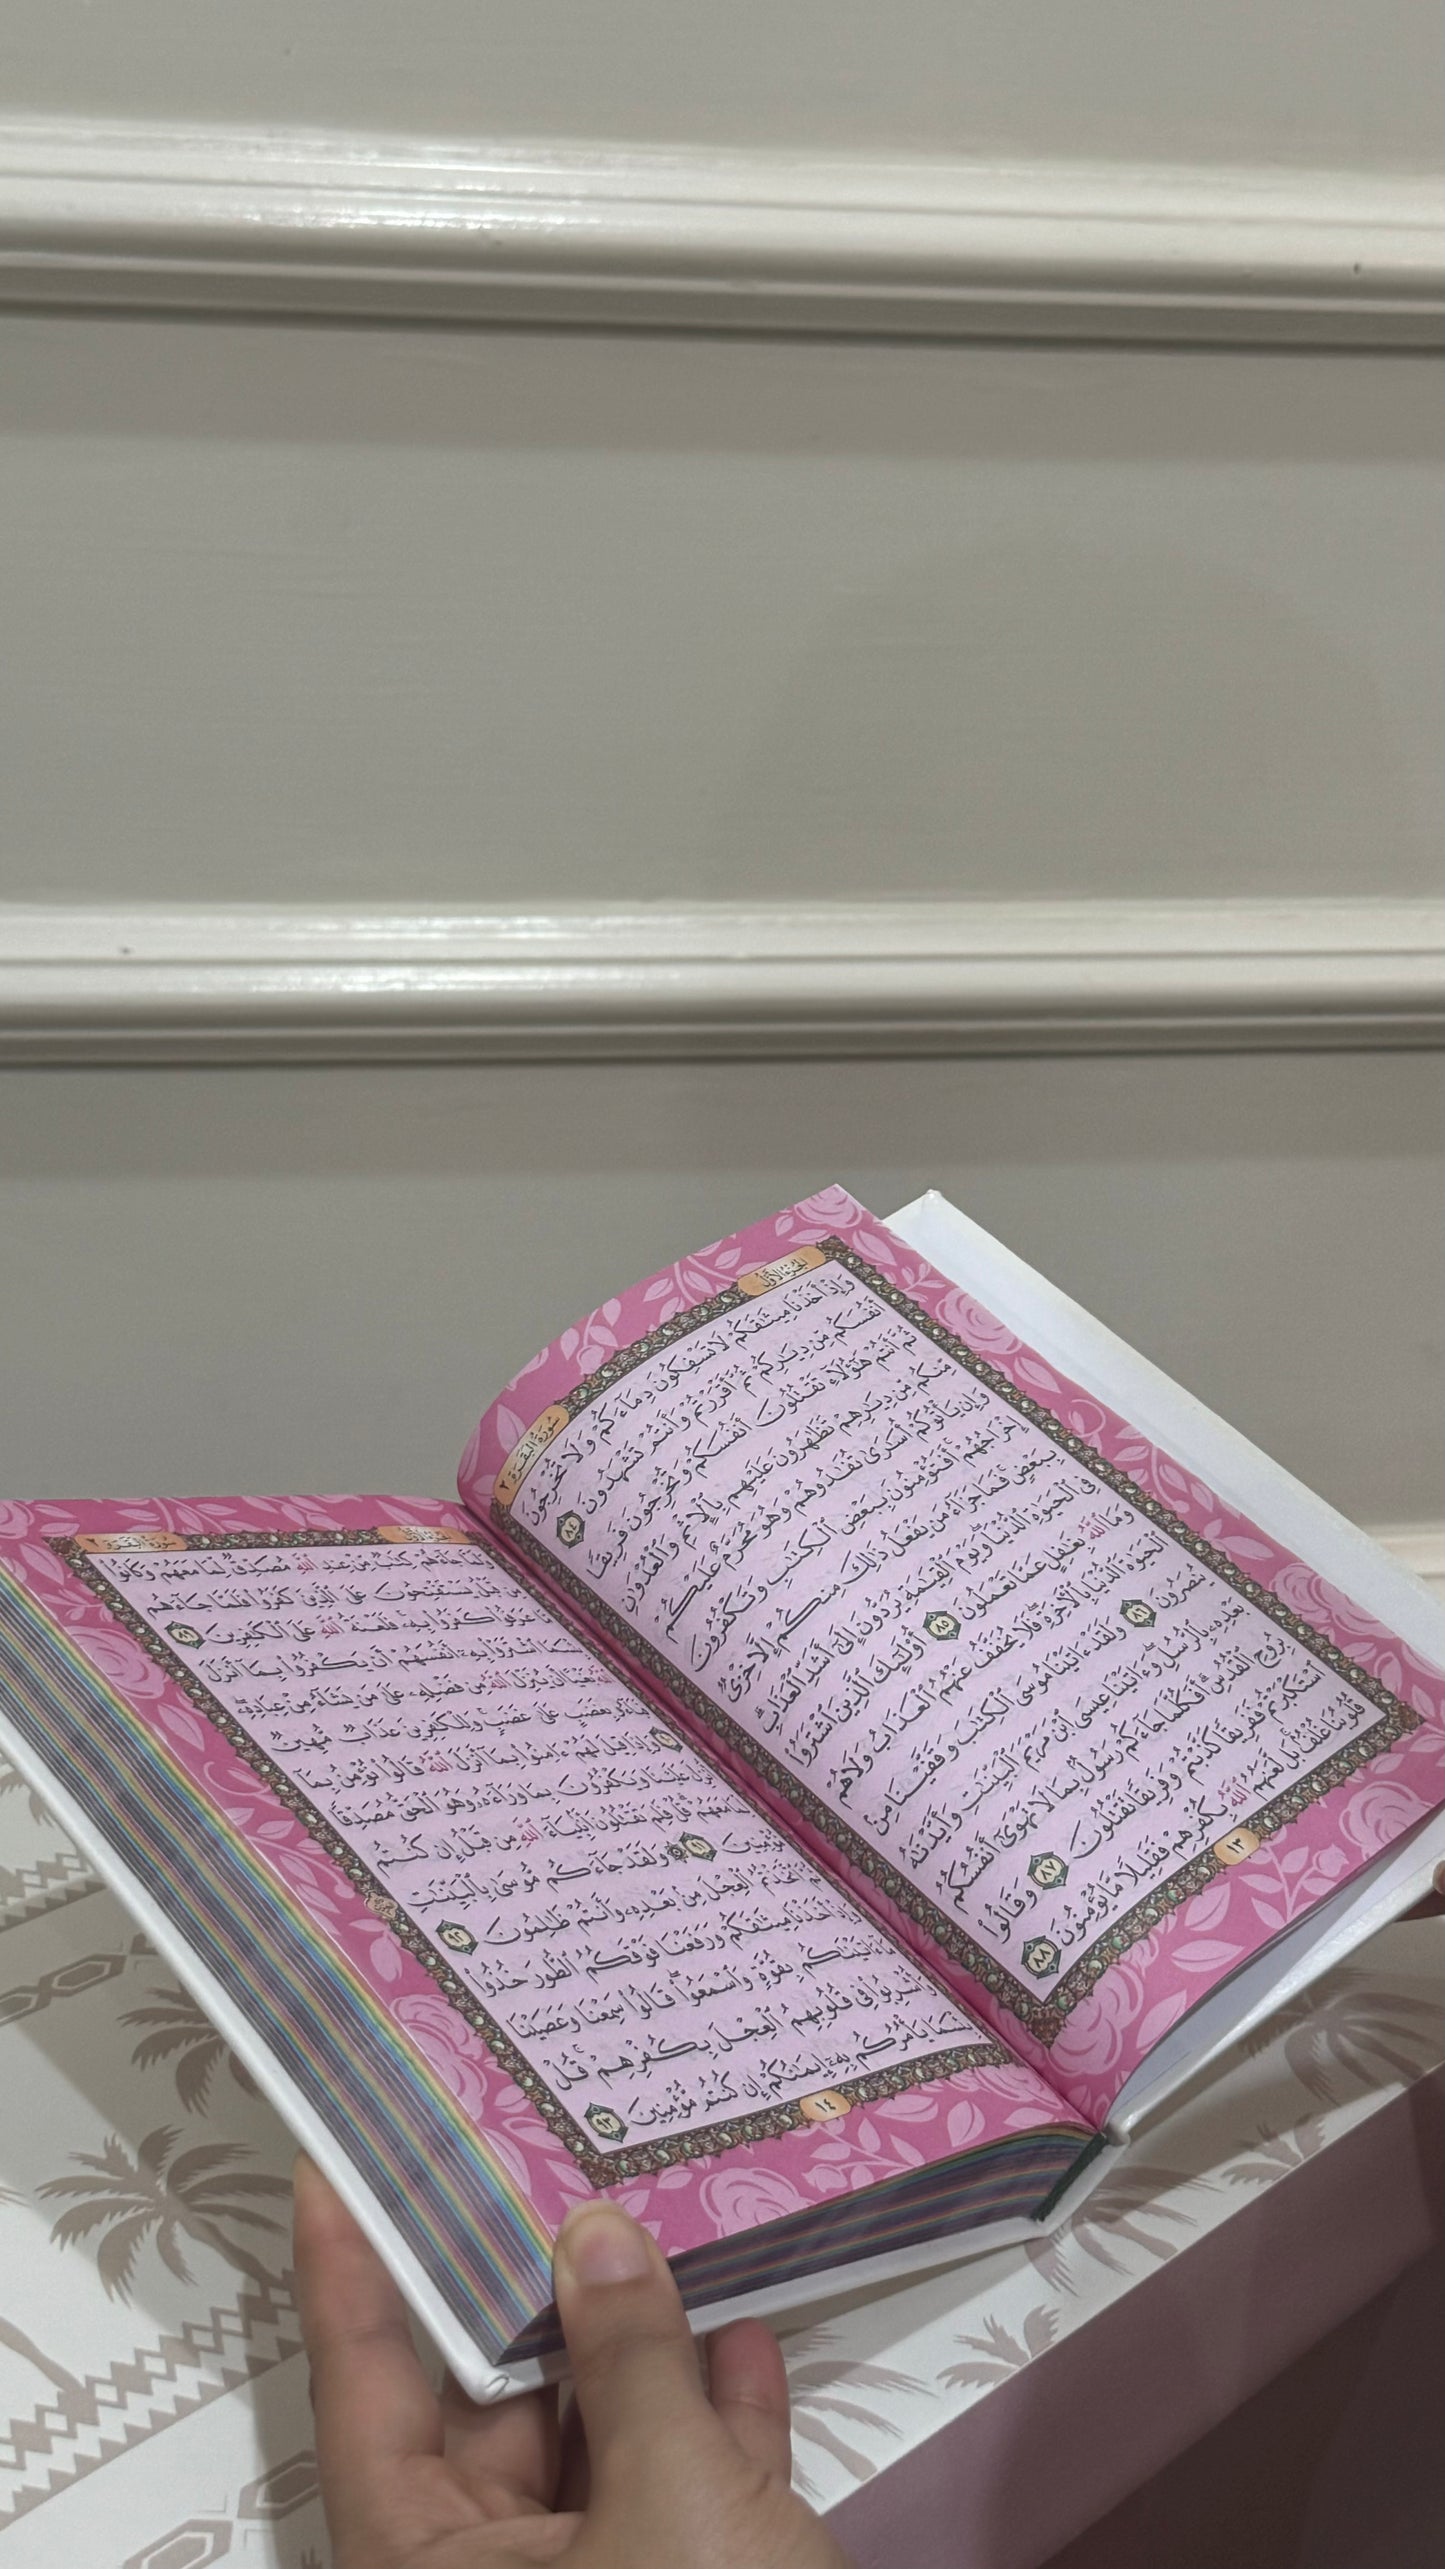 سُورَةُ البَقَرَةِ ٢
الجُزْءُ الأَوَّلُ
وَإِذْ أَخَذْنَا مِيثَٰقَكُمْ لَا تَسْفِكُونَ دِمَآءَكُمْ وَلَا تُخْرِجُونَ
أَنفُسَكُم مِّن دِيَٰرِكُمْ ثُمَّ أَقْرَرْتُمْ وَأَنتُمْ تَشْهَدُونَ ٨٤
ثُمَّ أَنتُمْ هَٰٓؤُلَآءِ تَقْتُلُونَ أَنفُسَكُمْ وَتُخْرِجُونَ فَرِيقًا
مِّنكُم مِّن دِيَٰرِهِمْ تَظَٰهَرُونَ عَلَيْهِم بِٱلْإِثْمِ وَٱلْعُدْوَٰنِ
وَإِن يَأْتُوكُمْ أُسَٰرَىٰ تُفَٰدُوهُمْ وَهُوَ مُحَرَّمٌ عَلَيْكُمْ
إِخْرَاجُهُمْ ۚ أَفَتُؤْمِنُونَ بِبَعْضِ ٱلْكِتَٰبِ وَتَكْفُرُونَ
بِبَعْضٍ ۚ فَمَا جَزَآءُ مَن يَفْعَلُ ذَٰلِكَ مِنكُمْ إِلَّا خِزْىٌ
فِى ٱلْحَيَوٰةِ ٱلدُّنْيَا ۖ وَيَوْمَ ٱلْقِيَٰمَةِ يُرَدُّونَ إِلَىٰٓ أَشَدِّ ٱلْعَذَابِ ۗ
وَمَا ٱللَّهُ بِغَٰفِلٍ عَمَّا تَعْمَلُونَ ٨٥ أُو۟لَٰٓئِكَ ٱلَّذِينَ ٱشْتَرَوُا۟
ٱلْحَيَوٰةَ ٱلدُّنْيَا بِٱلْءَاخِرَةِ ۖ فَلَا يُخَفَّفُ عَنْهُمُ ٱلْعَذَابُ وَلَا هُمْ
يُنصَرُونَ ٨٦ وَلَقَدْ ءَاتَيْنَا مُوسَى ٱلْكِتَٰبَ وَقَفَّيْنَا مِنۢ
بَعْدِهِۦ بِٱلرُّسُلِ ۖ وَءَاتَيْنَا عِيسَى ٱبْنَ مَرْيَمَ ٱلْبَيِّنَٰتِ وَأَيَّدْنَٰهُ
بِرُوحِ ٱلْقُدُسِ ۗ أَفَكُلَّمَا جَآءَكُمْ رَسُولٌۢ بِمَا لَا تَهْوَىٰٓ أَنفُسُكُمُ
ٱسْتَكْبَرْتُمْ فَفَرِيقًا كَذَّبْتُمْ وَفَرِيقًا تَقْتُلُونَ ٨٧ وَقَالُوا۟
قُلُوبُنَا غُلْفٌۢ ۚ بَل لَّعَنَهُمُ ٱللَّهُ بِكُفْرِهِمْ فَقَلِيلًا مَّا يُؤْمِنُونَ ٨٨
١٣
الجُزْءُ الأَوَّلُ
سُورَةُ البَقَرَةِ ٢
وَلَمَّا جَآءَهُمْ كِتَٰبٌ مِّنْ عِندِ ٱللَّهِ مُصَدِّقٌ لِّمَا مَعَهُمْ وَكَانُوا۟
مِن قَبْلُ يَسْتَفْتِحُونَ عَلَى ٱلَّذِينَ كَفَرُوا۟ فَلَمَّا جَآءَهُم
مَّا عَرَفُوا۟ كَفَرُوا۟ بِهِۦ ۚ فَلَعْنَةُ ٱللَّهِ عَلَى ٱلْكَٰفِرِينَ ٨٩
بِئْسَمَا ٱشْتَرَوْا۟ بِهِۦٓ أَنفُسَهُمْ أَن يَكْفُرُوا۟ بِمَآ أَنزَلَ
ٱللَّهُ بَغْيًا أَن يُنَزِّلَ ٱللَّهُ مِن فَضْلِهِۦ عَلَىٰ مَن يَشَآءُ مِنْ عِبَادِهِۦ ۖ
فَبَآءُو بِغَضَبٍ عَلَىٰ غَضَبٍ ۚ وَلِلْكَٰفِرِينَ عَذَابٌ مُّهِينٌ
٩٠ وَإِذَا قِيلَ لَهُمْ ءَامِنُوا۟ بِمَآ أَنزَلَ ٱللَّهُ قَالُوا۟ نُؤْمِنُ بِمَآ
أُنزِلَ عَلَيْنَا وَيَكْفُرُونَ بِمَا وَرَآءَهُۥ وَهُوَ ٱلْحَقُّ مُصَدِّقًا
لِّمَا مَعَهُمْ ۗ قُلْ فَلِمَ تَقْتُلُونَ أَنۢبِيَآءَ ٱللَّهِ مِن قَبْلُ إِن كُنتُم
مُّؤْمِنِينَ ٩١ ۞ وَلَقَدْ جَآءَكُم مُّوسَىٰ بِٱلْبَيِّنَٰتِ
ثُمَّ ٱتَّخَذْتُمُ ٱلْعِجْلَ مِنۢ بَعْدِهِۦ وَأَنتُمْ ظَٰلِمُونَ ٩٢
وَإِذْ أَخَذْنَا مِيثَٰقَكُمْ وَرَفَعْنَا فَوْقَكُمُ ٱلطُّورَ خُذُوا۟
مَآ ءَاتَيْنَٰكُم بِقُوَّةٍ وَٱسْمَعُوا۟ ۖ قَالُوا۟ سَمِعْنَا وَعَصَيْنَا
وَأُشْرِبُوا۟ فِى قُلُوبِهِمُ ٱلْعِجْلَ بِكُفْرِهِمْ ۚ قُلْ
بِئْسَمَا يَأْمُرُكُم بِهِۦٓ إِيمَٰنُكُمْ إِن كُنتُم مُّؤْمِنِينَ ٩٣
١٤